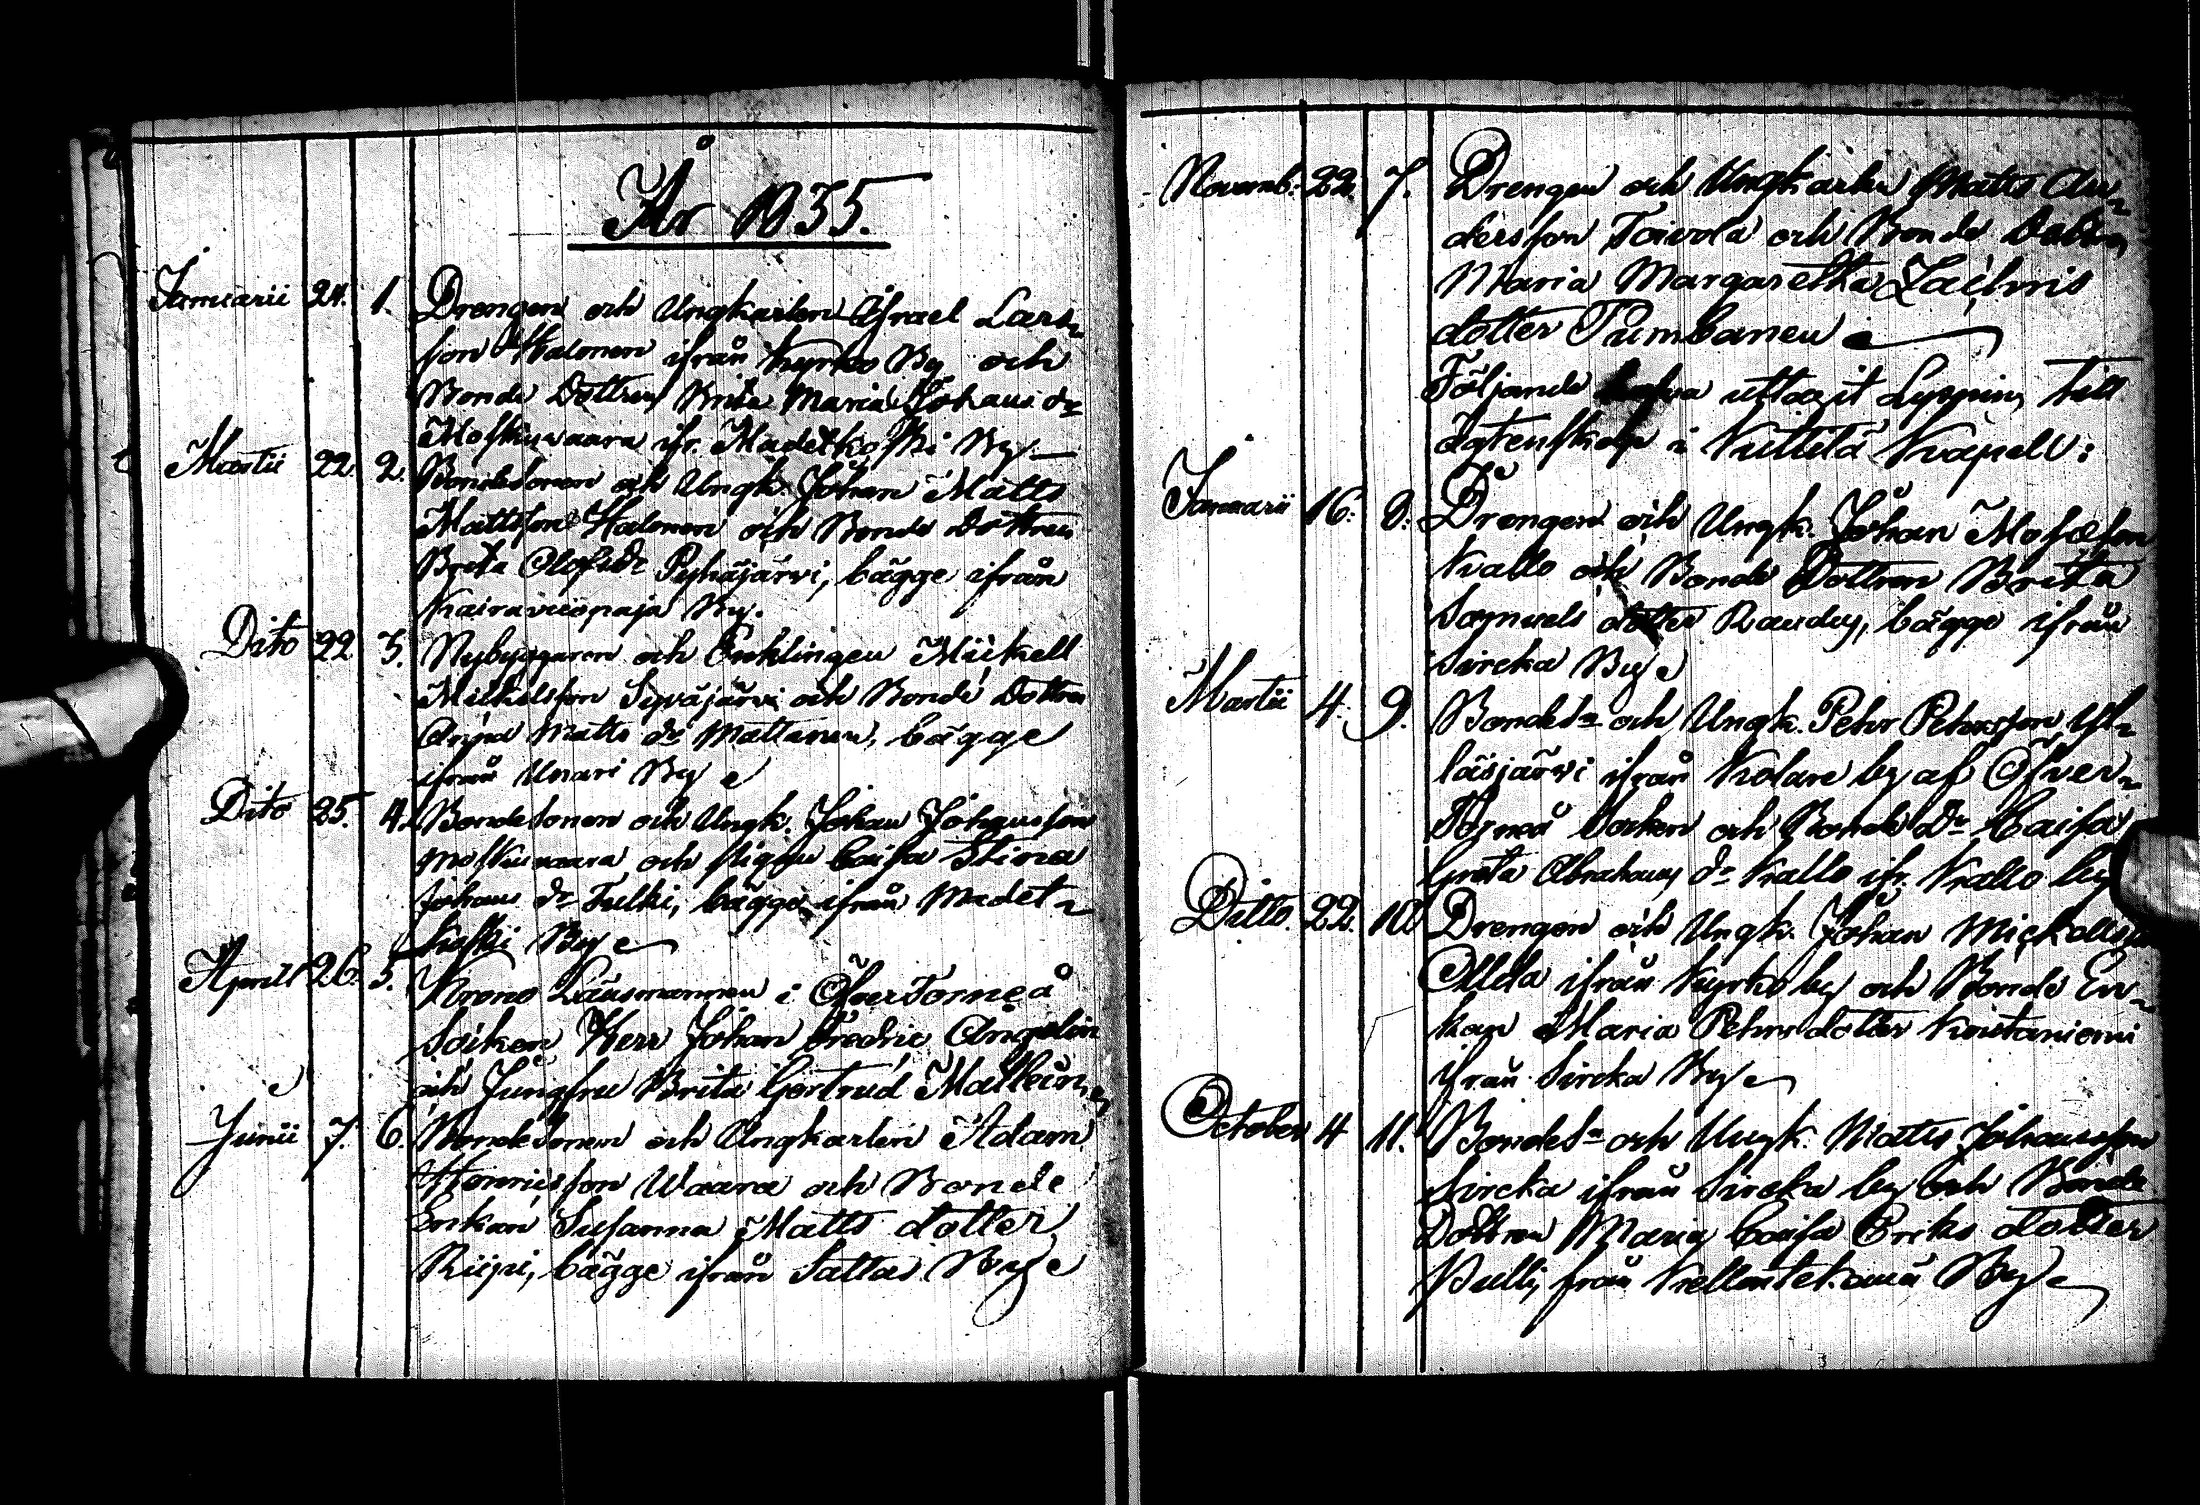 År 1835.
Januarii 24. 1. Drengen och Ungkarlen Israel Lars-
son Halonen ifrån Kyrko By och
Bonde Dottren Brita Maria Johans dr
Moskuvaara ifr. Madetkoski By.
Martii 22. 2. Bondesonen och Ungk. Johan Matts
Mattsson Halonen och Bonde dottren
Brita Olofsdr Pyhäjärvi, bägge ifrån
Kairavuopaja By.
Dito 22. 3. Nybyggaren och Enklingen Mickell
Mickelsson Syväjärvi och Bonde Dottren
Anna Matts dr Mattanen, bägge
ifrån Unari By
Dito 25. 4. Bondesonen och Ungk. Johan Johansson
Moskuvaara och Pigan Caisa Stina
Johans dr Tulki, bägge ifrån Madet-
koski By
Aprill 26. 5. Krono Länsmannen i ÖfverTorneå
Socken Herr Johan Fredric Angelin
och Jungfru Brita Gertrud
Junii 7. 6. Bondesonen och Ungkarlen Adam
Henricsson Waara och Bonde
Enkan Susanna Matts dotter
Riipi, bägge ifrån Sattas By
Novemb. 22. 7. Drengen och Ungkarlen Matts An-
dersson Toivola och Bonde Dottren
Maria Margaretha
dotter Pumbanen
Följande hafva uttagit Lysning till
ägtenskap i Kittilä Kapell:
Januarii 16. 8. Drengen och Ungk. Johan Mosesson
Kallo och Bonde Dottren Brita
Samuels dotter Raudus, bägge ifrån
Sircka By
Martii 4. 9. Bondesn och Ungk. Pehr Pehrsson Yl-
läsjärvi ifrån Kolare by af Öfver-
Torneå Socken och Bonde Dr Caisa
Greta Abrahams dr Kallo ifr. Kallo by
Ditto. 22. 10. Drengen och Ungk. Johan Mickellsson
Ollila ifrån Kyrko by och Bonde En-
kan Maria Pehrsdotter Koistaniemi
ifrån Sircka By
October 4 11. Bondesn och Ungk. Matts Johansson
Sircka ifrån Sircka by och Bonde
Dottren Maria Caisa Eriks dotter
Pulli, från Kellontekämä By